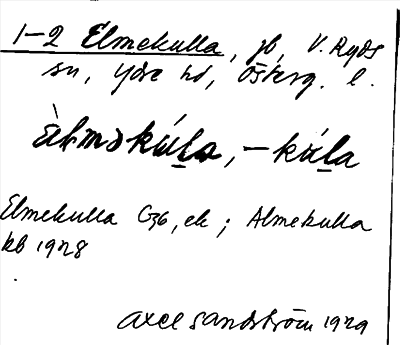 1–2 Elmekulla, gb, V. Ryds
sn, Ydre hd, Österg. l.
èlməkúl̠a, –kúl̠a
Elmekulla C36, ek; Almekulla
kb 1928
Axel Sandström 1929